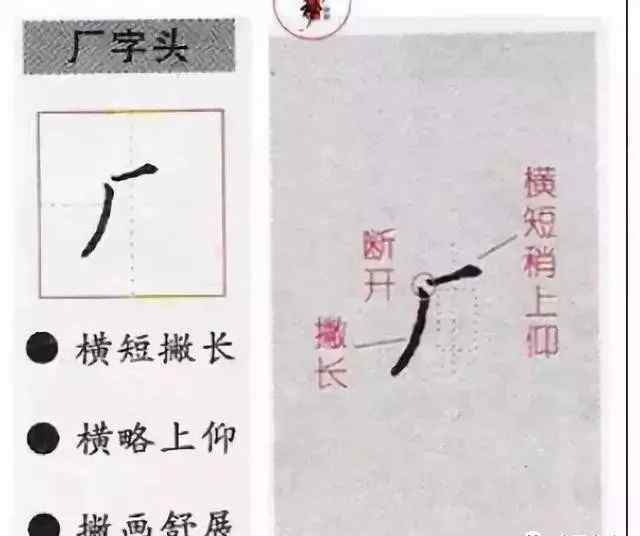 厂字头
厂
横短撇长
横略上仰
撇画舒展
横短稍上仰
断开
厂
撇长